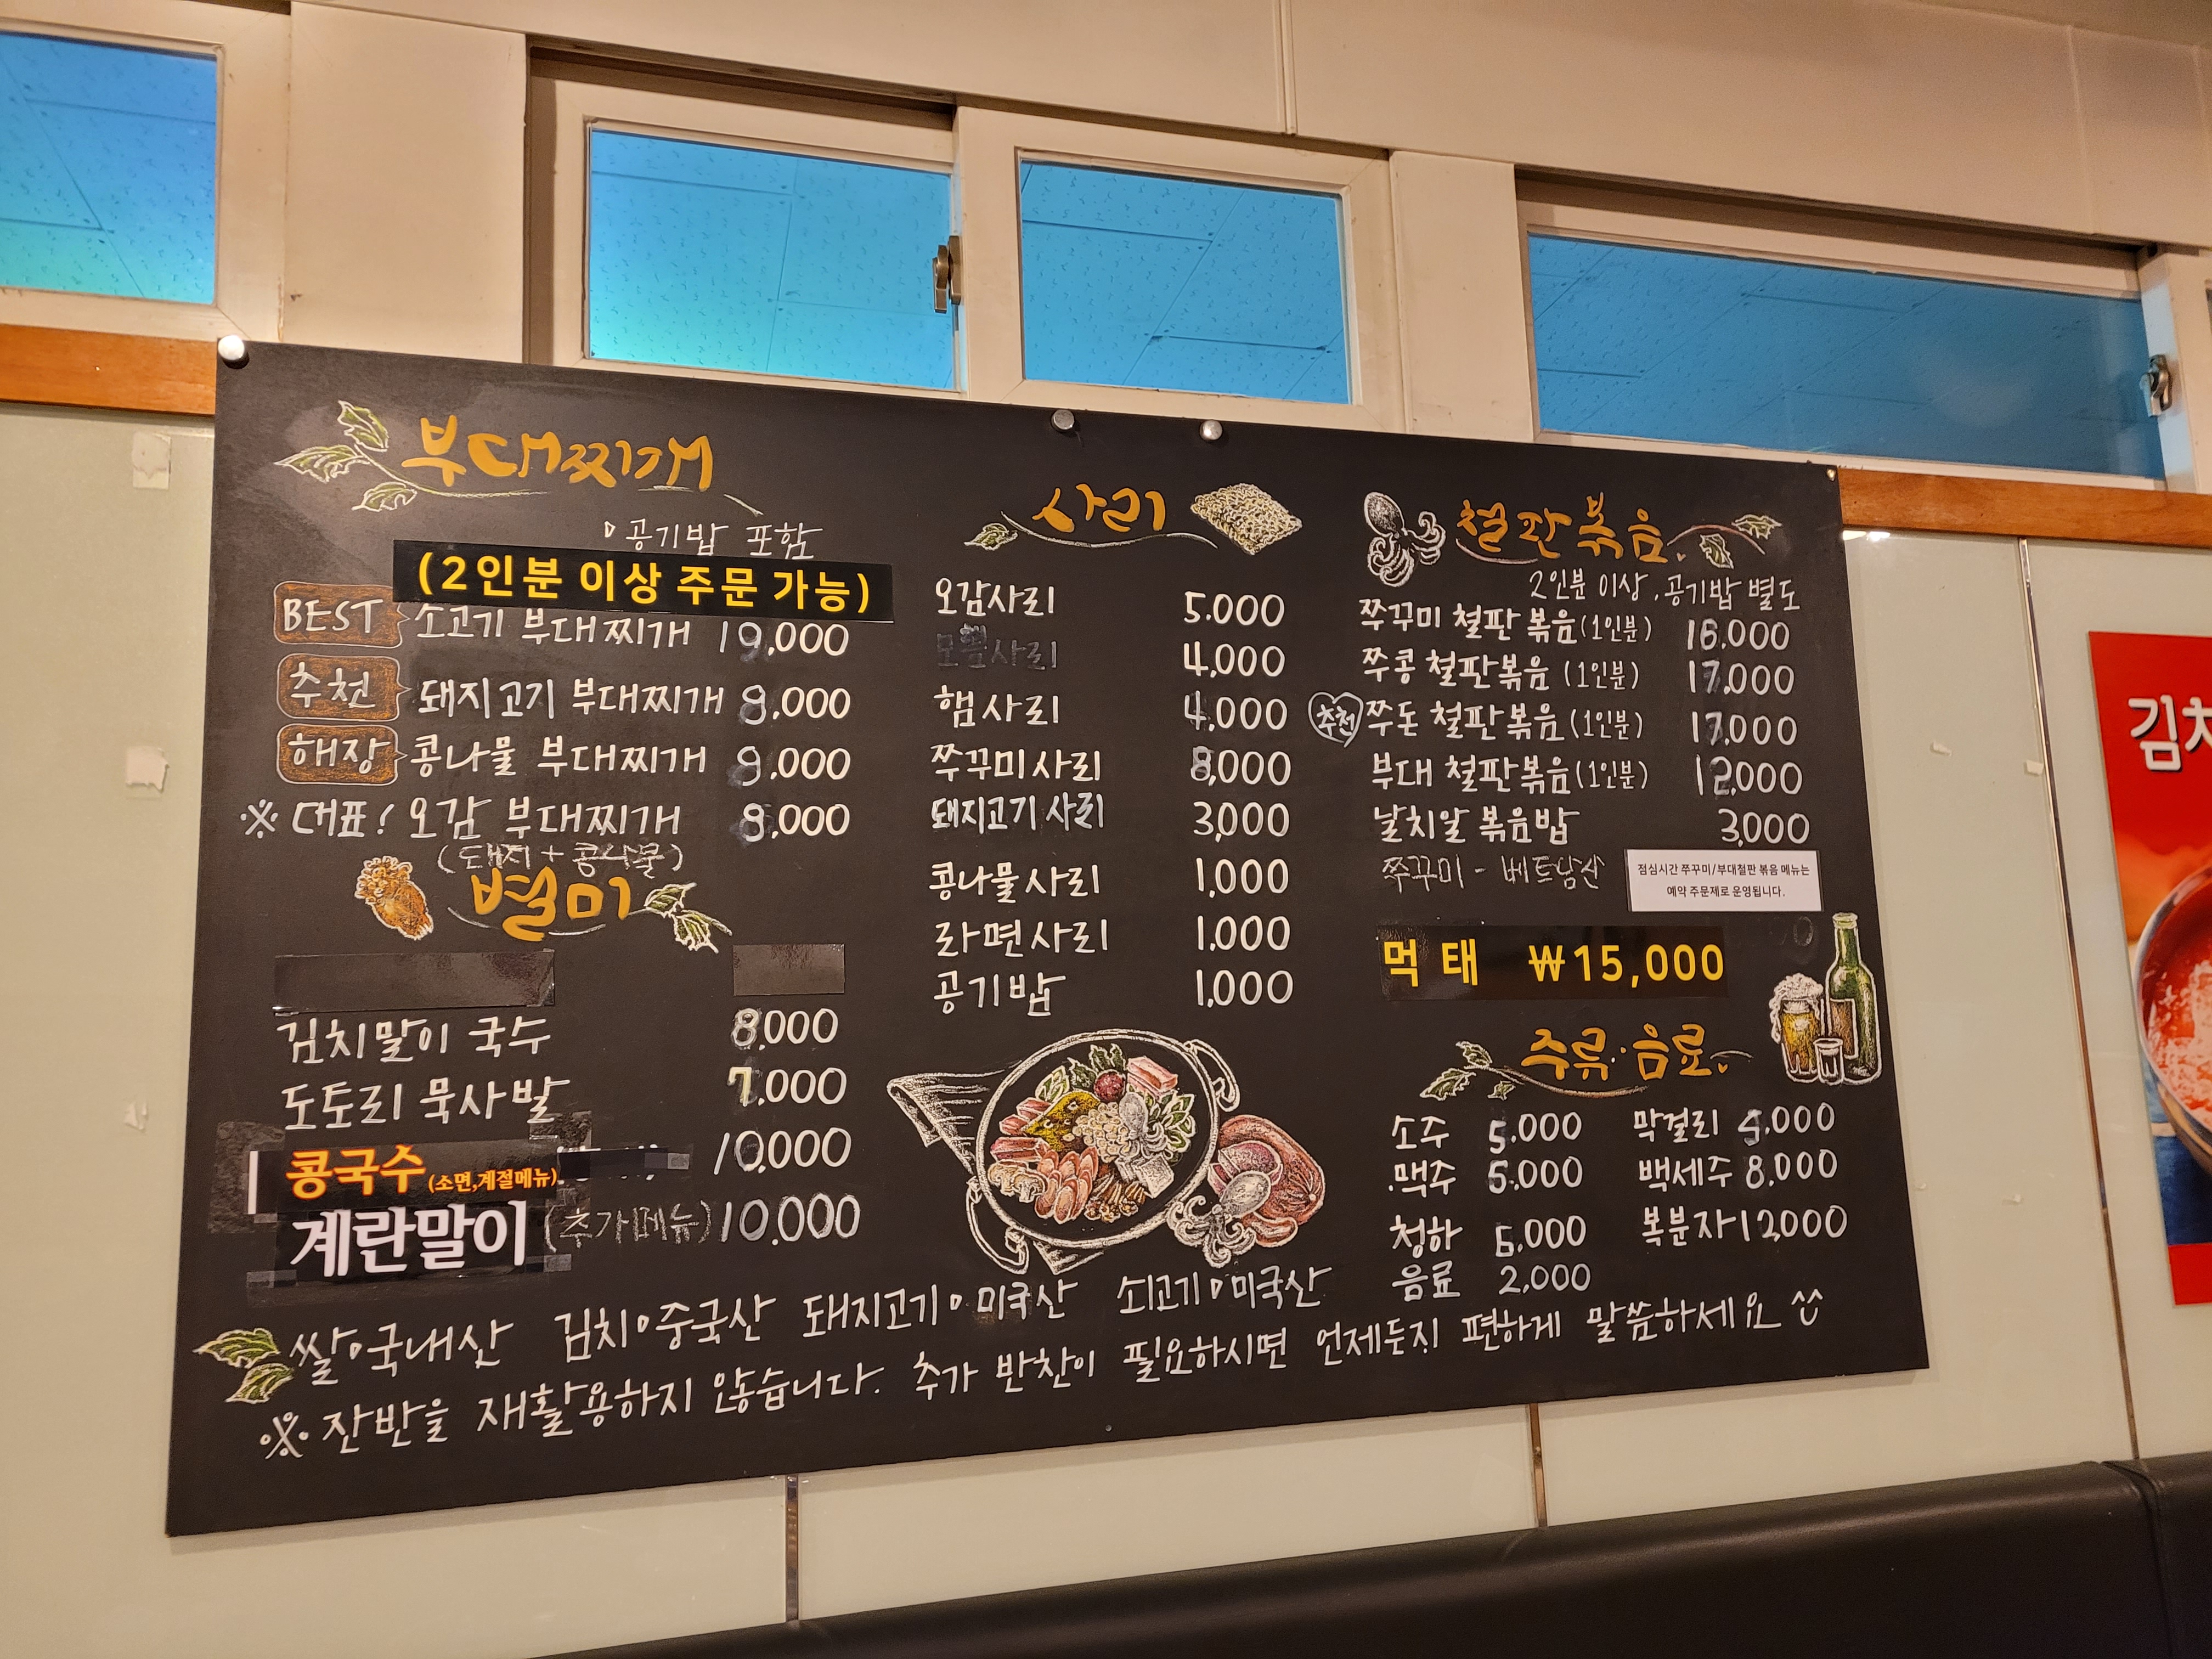 부대찌개
공기밥 포함
(2인분 이상 주문 가능)
BEST 소고기 부대찌개 19,000
추천 돼지고기 부대찌개 9,000
해장 콩나물 부대찌개 9,000
※ 대표! 오감 부대찌개 9,000
(돼지+콩나물)
별미
김치말이 국수 8,000
도토리 묵사발 7,000
콩국수 (소면,계절메뉴) 10,000
계란말이 (추가메뉴) 10,000
사리
오감사리 5,000
모듬사리 4,000
햄사리 4,000
쭈꾸미사리 8,000
돼지고기 사리 3,000
콩나물사리 1,000
라면사리 1,000
공기밥 1,000
철판볶음
2인분 이상, 공기밥 별도
쭈꾸미 철판볶음 (1인분) 16,000
쭈콩 철판볶음 (1인분) 17,000
추천 쭈돈 철판볶음 (1인분) 17,000
부대 철판볶음 (1인분) 12,000
날치알 볶음밥 3,000
쭈꾸미 - 베트남산
점심시간 쭈꾸미/부대철판 볶음 메뉴는
예약 주문제로 운영됩니다.
먹태 ₩15,000
주류·음료
소주 5,000 막걸리
맥주 5,000 백세주 8,000
청하 복분자 12,000
음료 2,000
쌀·국내산 김치·중국산 돼지고기·미국산 쇠고기·미국산
※ 잔반을 재활용하지 않습니다. 추가 반찬이 필요하시면 언제든지 편하게 말씀하세요 ^^
김치